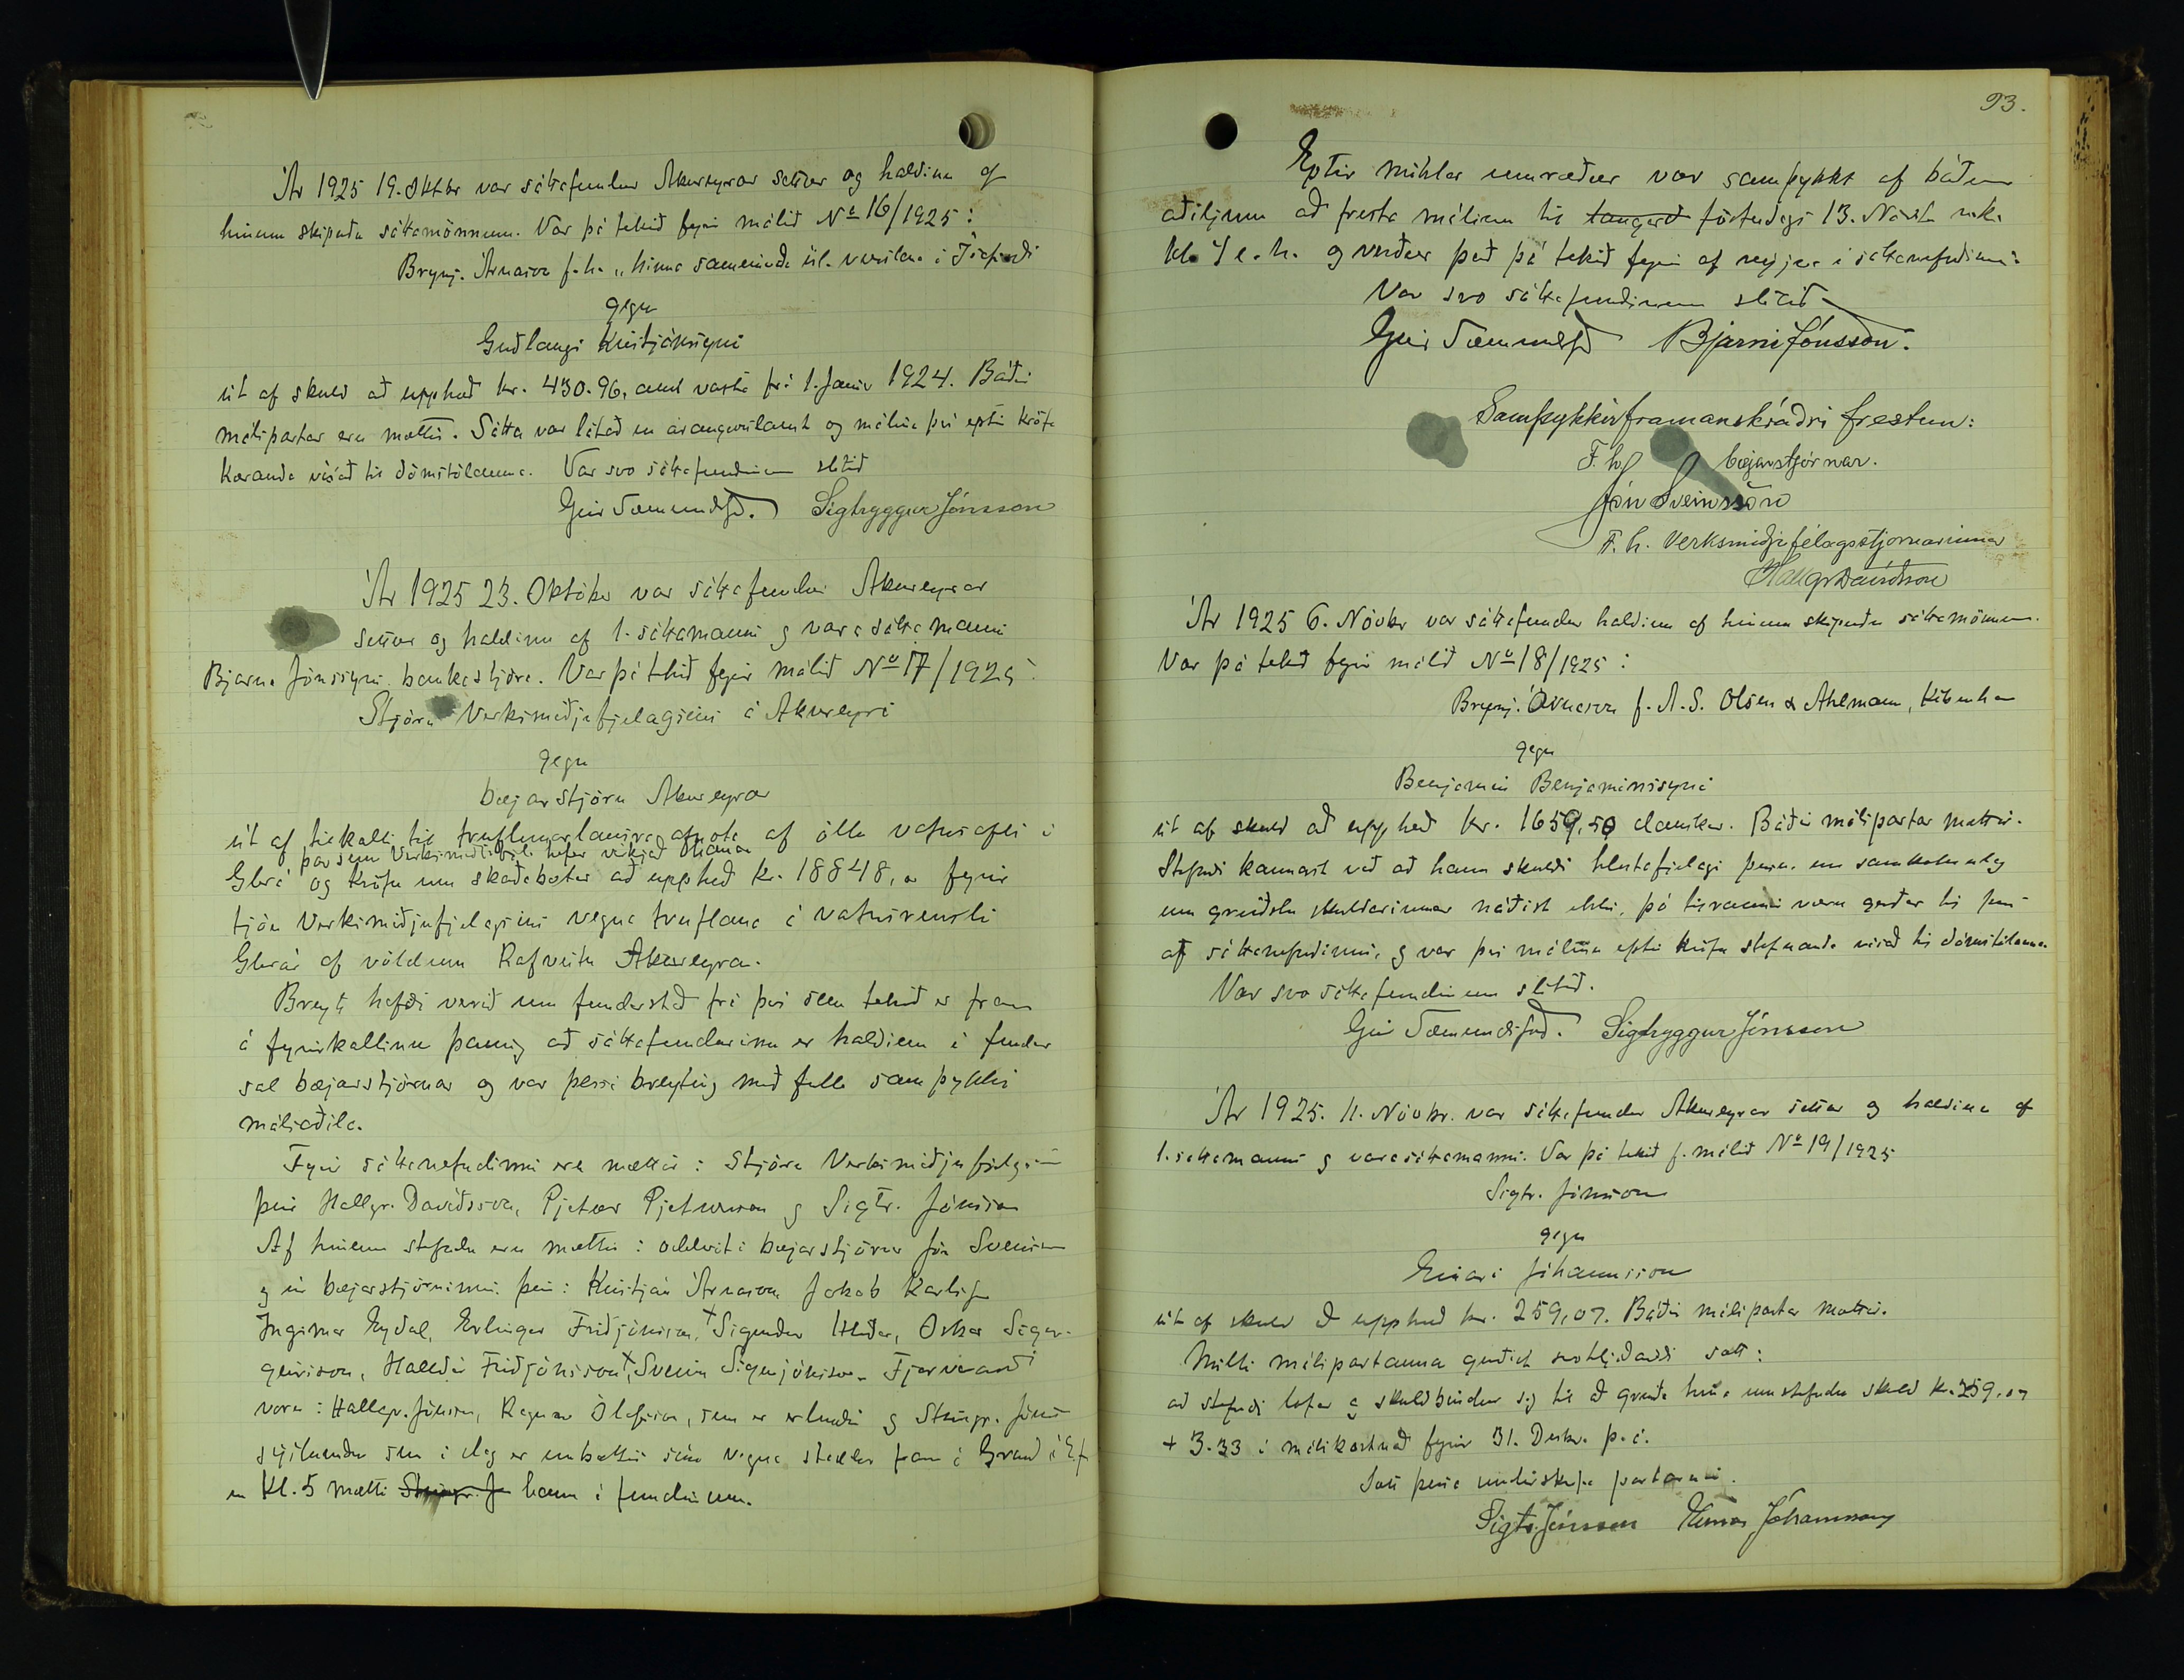 Ár 1925 19. Oktbr var sáttafundur Akureyrar settur og haldinn af
hinum skipuðu sáttamönnum. Var þá tekið fyrir málið No 16/1925:
Brynj. Árnason f.h. „hinna sameinuðu ísl. verslana á Ísafirði
gegn
Guðlaugi Kristjánssyni
út af skuld að upphæð kr. 430.96, auk vaxta frá 1. Janúar 1924. Báðir
málspartar eru mættir. Sátta var leitað en árangurslaust og málinu því eptir kröfu
kæranda vísað til dómstólanna. Var svo sáttafundinum slitið
Geir Sæmundsson. Sigtryggur Jónsson
Ár 1925 23. Október var sáttafundur Akureyrar
settur og haldinn af 1. sáttamanni og vara sáttamanni
Bjarna Jónssyni bankastjóra. Var þá tekið fyrir málið No 17/1925:
Stjórn Verksmiðjufjelagsins á Akureyri
gegn
bæjarstjórn Akureyrar
út af tilkalli til truflunarlausra afnota af öllu vatnsafli í
þar sem Verksmiðjufjel. hefur virkjað hana
Glerá og kröfu um skaðabætur að upphæð kr. 18848, fyrir
tjón Verksmiðjufjelagsins vegna truflana á vatnsrensli
Glerár af völdum Rafveitu Akureyrar.
Breytt hafði verið um fundarstað frá því sem tekið er fram
á fyrirkallinu þannig að sáttafundurinn er haldinn í fundar
sal bæjarstjórnar og var þessi breyting með fullu samþykki
málsaðila.
Fyrir sáttanefndinni eru mættir: Stjórn Verksmiðjufjelagsins
þeir Hallgr. Davíðsson, Pjetur Pjetursson og Sigtr. Jónsson
Af hinum stefndu eru mættir: oddviti bæjarstjórnar Jón Sveinsson
og úr bæjarstjórninni þeir: Kristján Árnason, Jakob Karlsson
Ingimar Eydal, Erlingur Friðjónsson, × Sigurður Hlíðar, Óskar Sigur-
geirsson, Halldór Friðjónsson, × Sveinn Sigurjónsson. Fjarverandi
voru: Hallgr. Jónsson, Ragnar Ólafsson, sem er erlendis og Steingr. Jónsson
sýslumaður sem í dag er embættis síns vegna staddur fram í Grund í Ef
en kl. 5 mætti Steingr. J hann á fundinum.
93.
Eptir miklar umræður var samþykkt af báðum
aðiljum að fresta málinu til laugard föstudags 13. Nóvbr n.k.
kl. 4 e.h. og verður það þá tekið fyrir af nýju í sáttanefndinni.
Var svo sáttafundinum slitið
Geir Sæmundsson Bjarni Jónsson.
Samþykkir framanskráðri frestun:
F. h. bæjarstjórnar.
Jón Sveinsson
F. h. Verksmiðjufélagsstjórnarinnar
Hallgr Davíðsson
Ár 1925 6. Nóvbr var sáttafundur haldinn af hinum skipuðu sáttamönnum.
Var þá tekið fyrir málið No 18/1925:
Brynj. Árnason f. A.S. Olsen & Ahlmann, Köbenhavn
gegn
Benjamín Benjamínssyni
út af skuld að upphæð kr. 1659,50 danskar. Báðir málspartar mættir.
Stefndi kannast við að hann skuldi hlutafjelagi þessu, en samkomulag
um greiðslu skuldarinnar náðist ekki, þó tilraunir væru gerðar til þess
af sáttanefndinni, og var því málinu eptir kröfu stefnanda vísað til dómstólanna.
Var svo sáttafundinum slitið.
Geir Sæmundsson. Sigtryggur Jónsson
Ár 1925. 11. Nóvbr. var sáttafundur Akureyrar settur og haldinn af
1. sáttamanni og varasáttamanni. Var þá tekið f. málið No 19/1925
Sigtr. Jónsson
gegn
Einari Jóhannssyni
út af skuld að upphæð kr. 259,07. Báðir málspartar mættir.
Milli málspartanna gerðist svohljóðandi sátt:
að stefndi lofar og skuldbindur sig til að greiða hina umstefndu skuld kr. 259,07
+ 3.33 í málskostnað fyrir 31. Desbr. þ.á.
Sátt þessa undirskrifa partarnir.
Sigtr. Jónsson Einar Jóhannsson